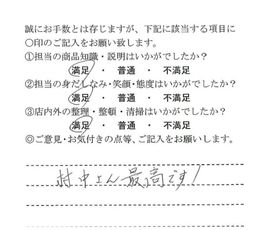 誠にお手数とは存じますが、下記に該当する項目に
〇印のご記入をお願い致します。
①担当の商品知識・説明はいかがでしたか？
満足 ・ 普通 ・ 不満足
②担当の身だしなみ・笑顔・態度はいかがでしたか？
満足 ・ 普通 ・ 不満足
③店内外の整理・整頓・清掃はいかがでしたか？
満足 ・ 普通 ・ 不満足
◎ご意見・お気付きの点等、ご記入をお願いします。
村中さん最高です!